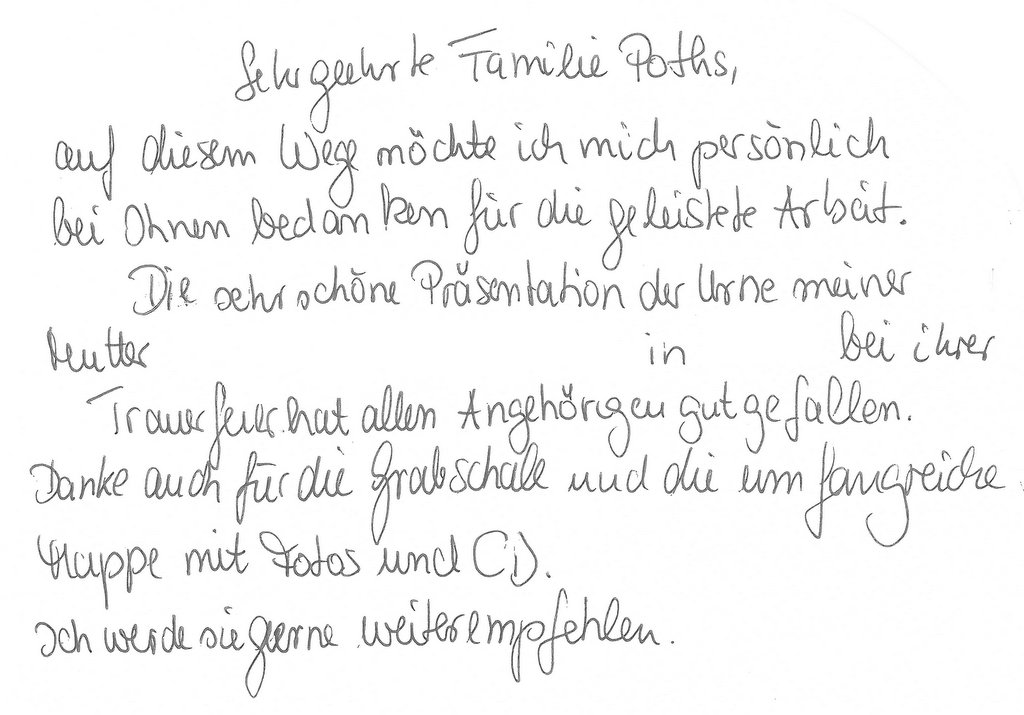 Sehr geehrte Familie Poths,
auf diesem Wege möchte ich mich persönlich
bei Ihnen bedanken für die geleistete Arbeit.
Die sehr schöne Präsentation der Urne meiner
Mutter in bei ihrer
Trauerfeier hat allen Angehörigen gut gefallen.
Danke auch für die Grabschale und die umfangreiche
Mappe mit Fotos und CD.
Ich werde sie gerne weiterempfehlen.